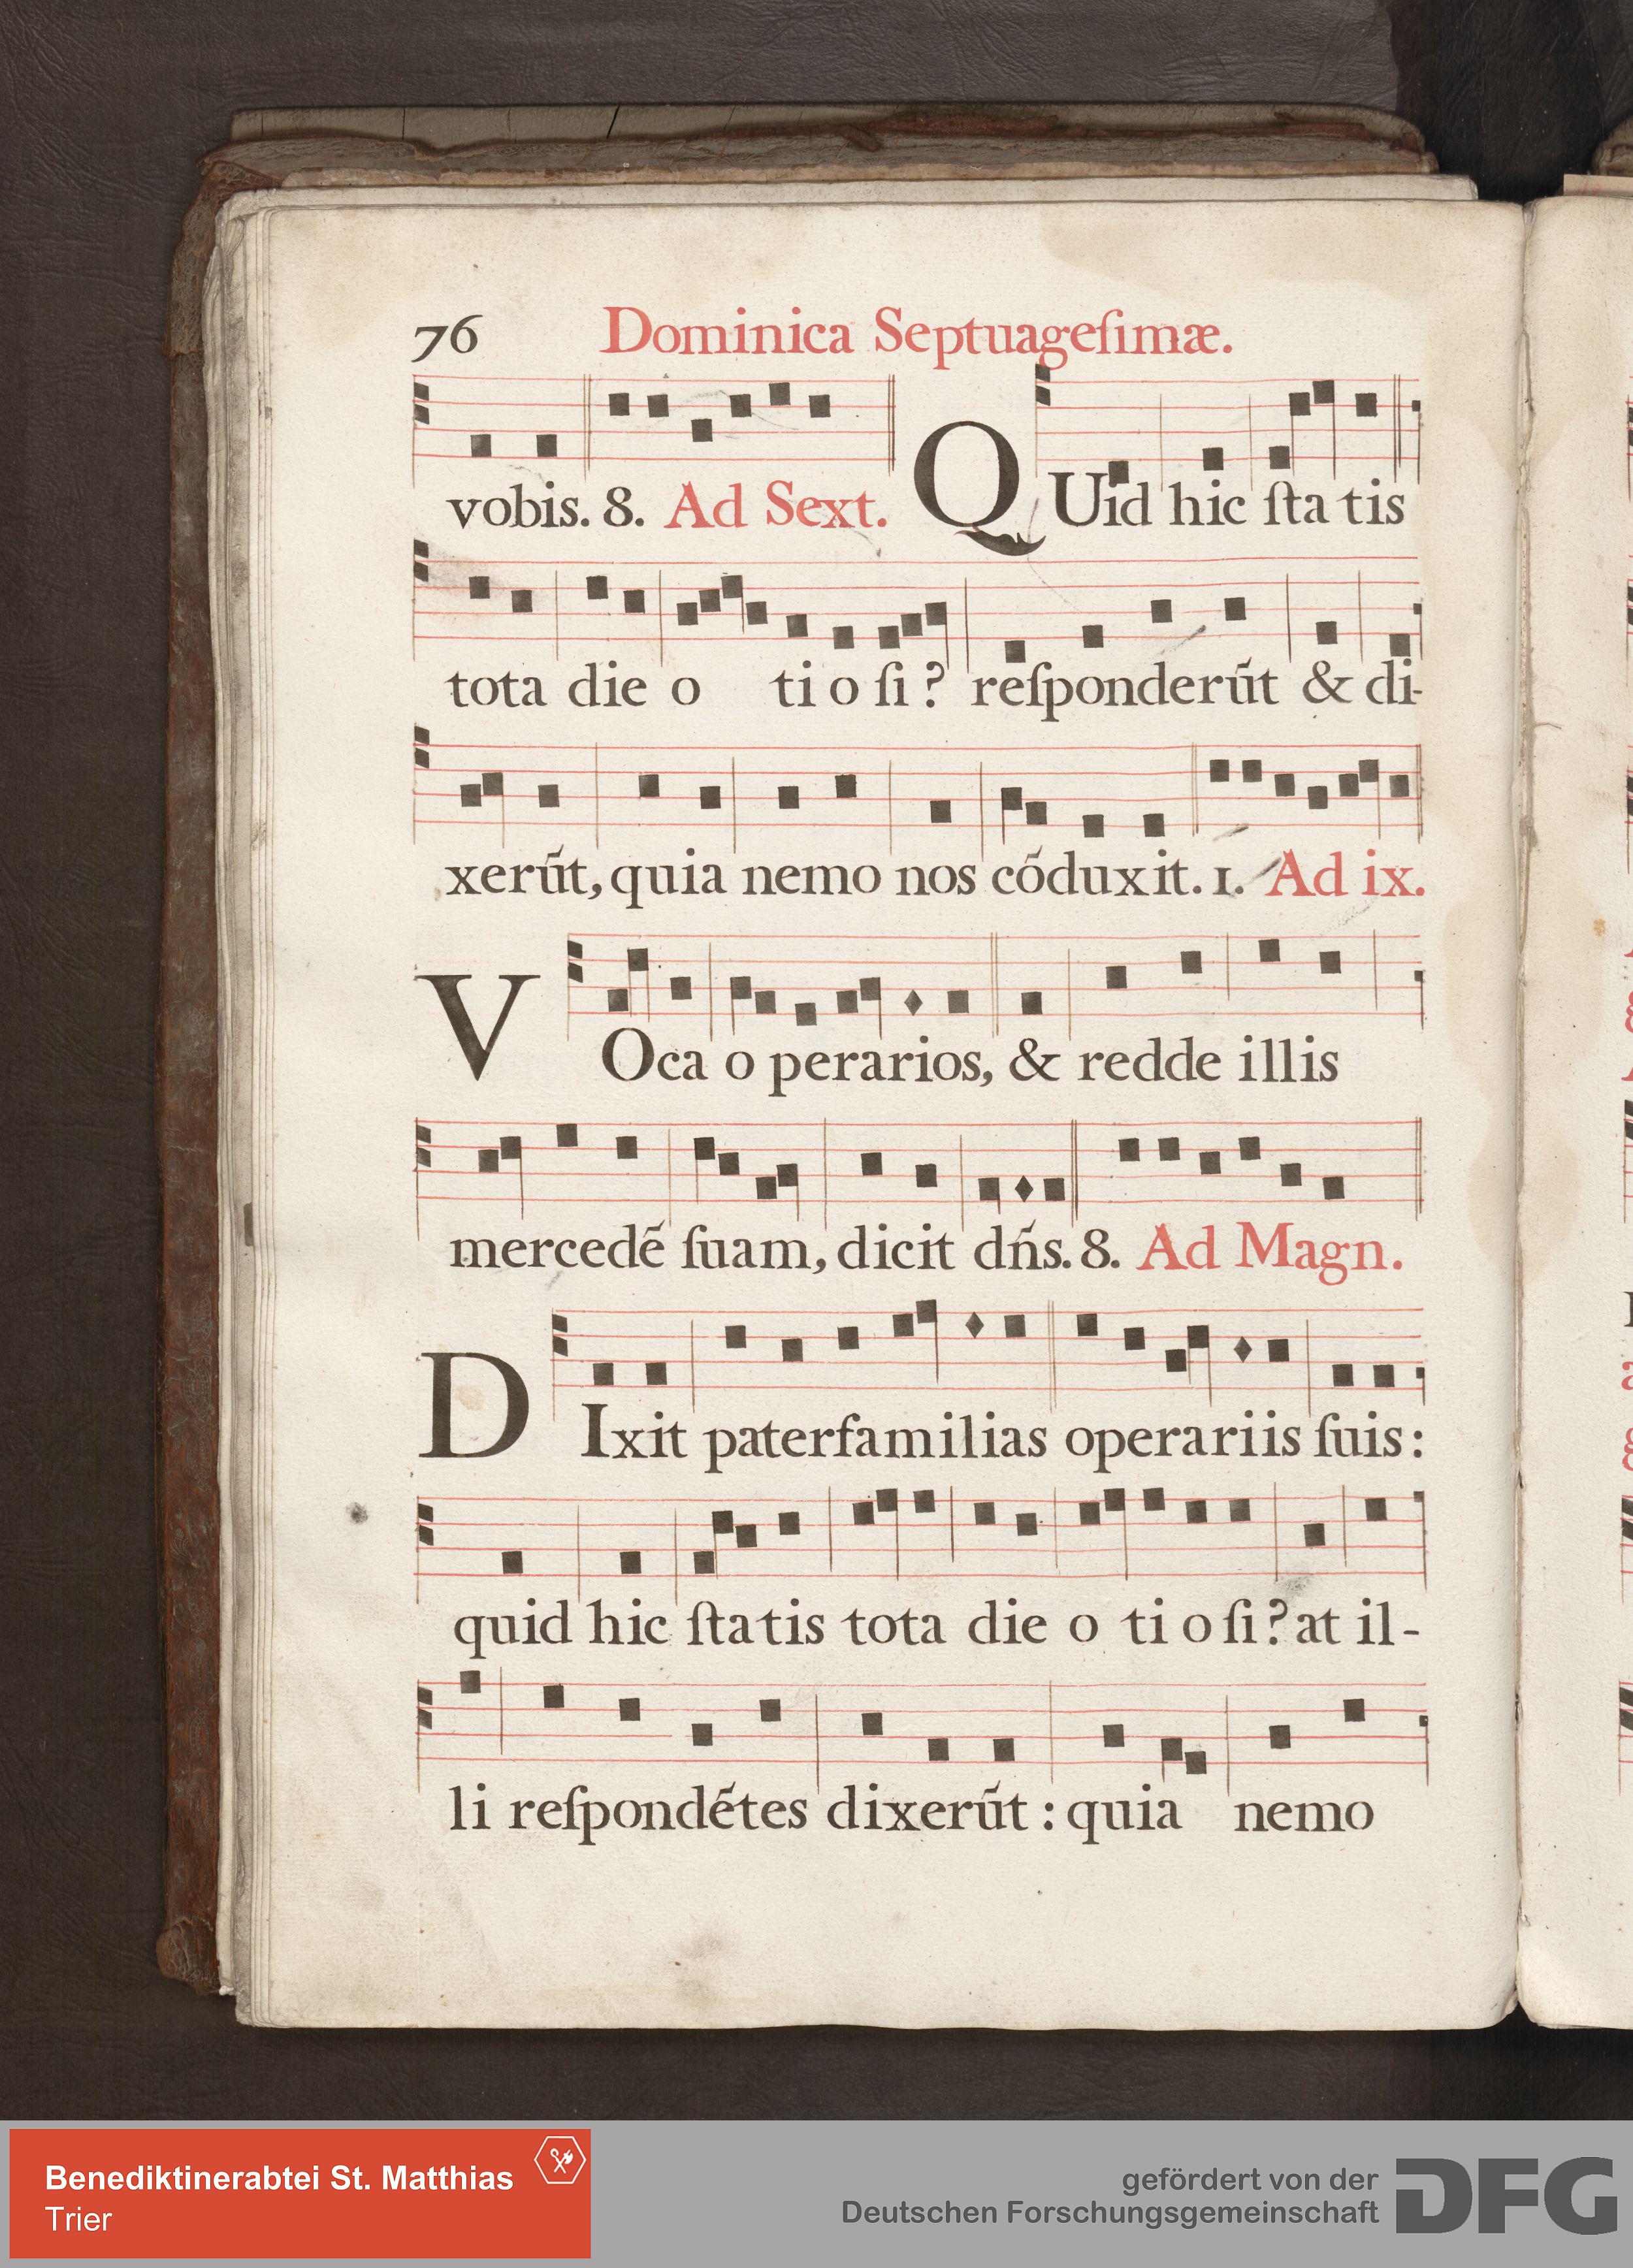 76 Dominica Septuageſimæ.
vobis. 8. Ad Sext. QUid hic ſta tis
tota die o ti o ſi? reſponderũt & di-
xerũt, quia nemo nos cõduxit. 1. Ad ix.
VOca o perarios, & redde illis
mercedẽ ſuam, dicit dñs. 8. Ad Magn.
DIxit paterfamilias operariis ſuis:
quid hic ſtatis tota die o ti o ſi? at il-
li reſpondẽtes dixerũt: quia nemo
Benediktinerabtei St. Matthias
Trier
gefördert von der
Deutschen Forschungsgemeinschaft
DFG